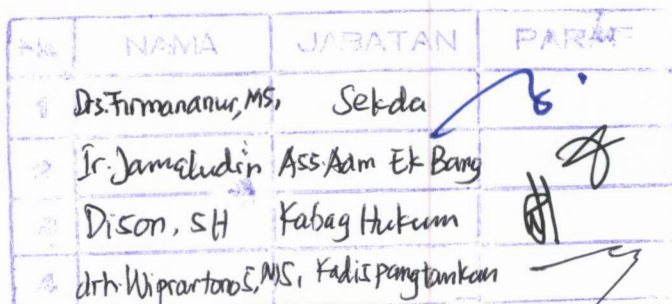 No NAMA JABATAN PARAF
1 Drs. Firmananur, MS, Sekda
2 Ir. Jamaludin Ass. Adm Ek Bang
3 Dison, SH Kabag Hukum
4 drh. Wiprartono S, MS, Kadispangtankan